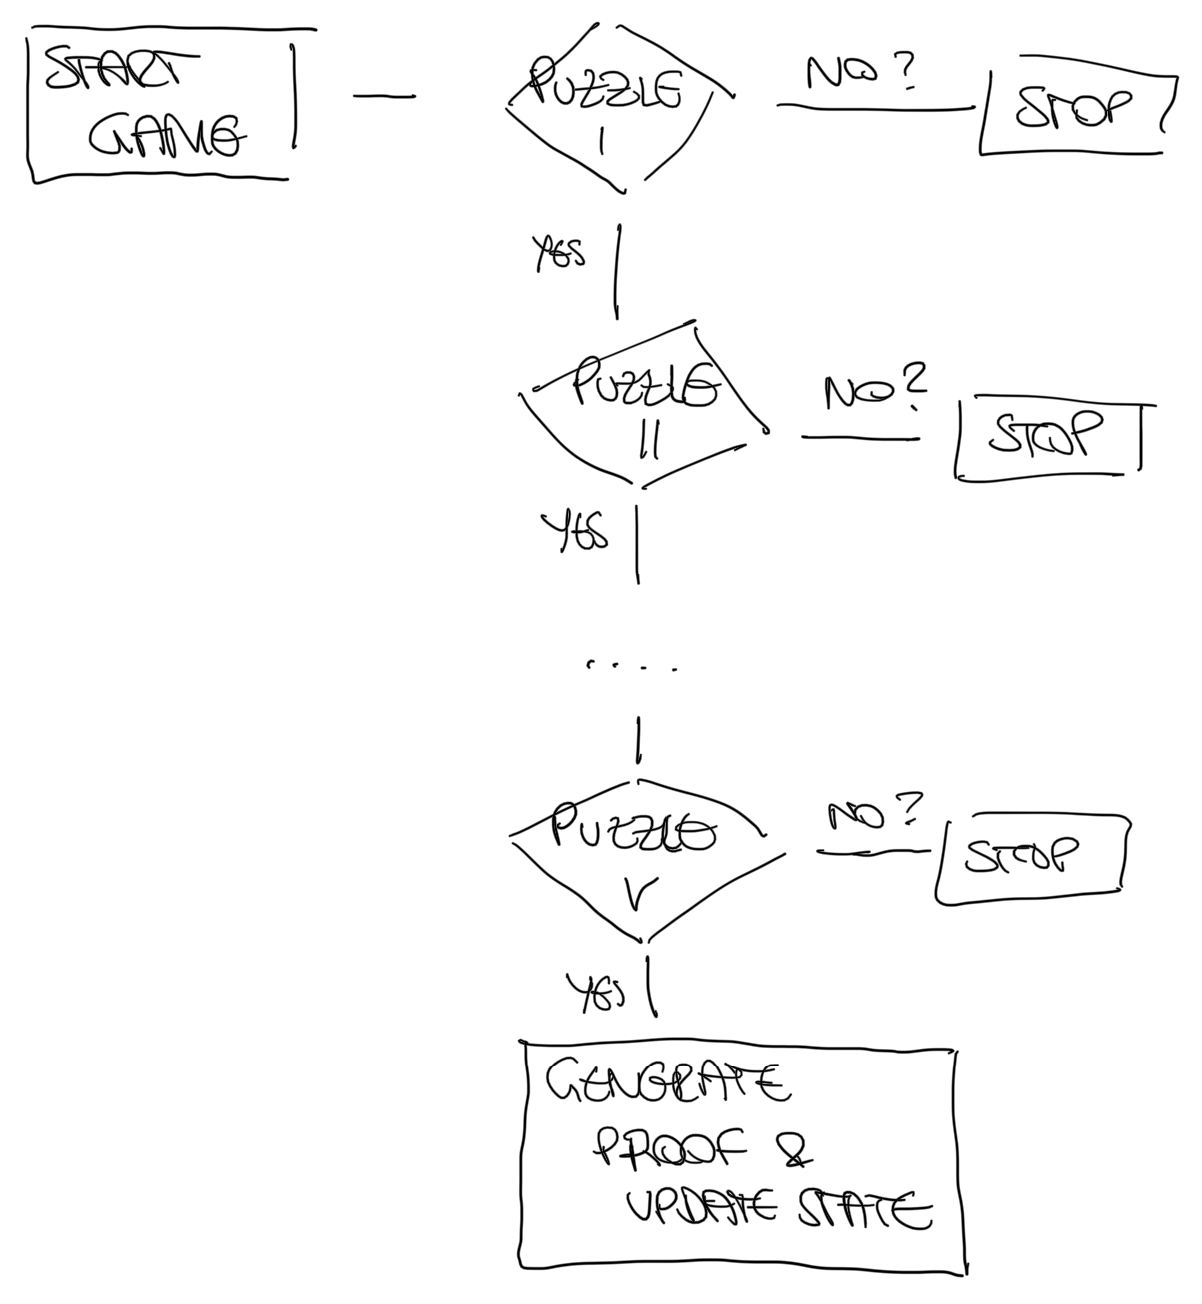 START
GAME
PUZZLE
I
NO?
STOP
YES
PUZZLE
II
NO?
STOP
YES
....
PUZZLE
V
NO?
STOP
YES
GENERATE
PROOF &
UPDATE STATE